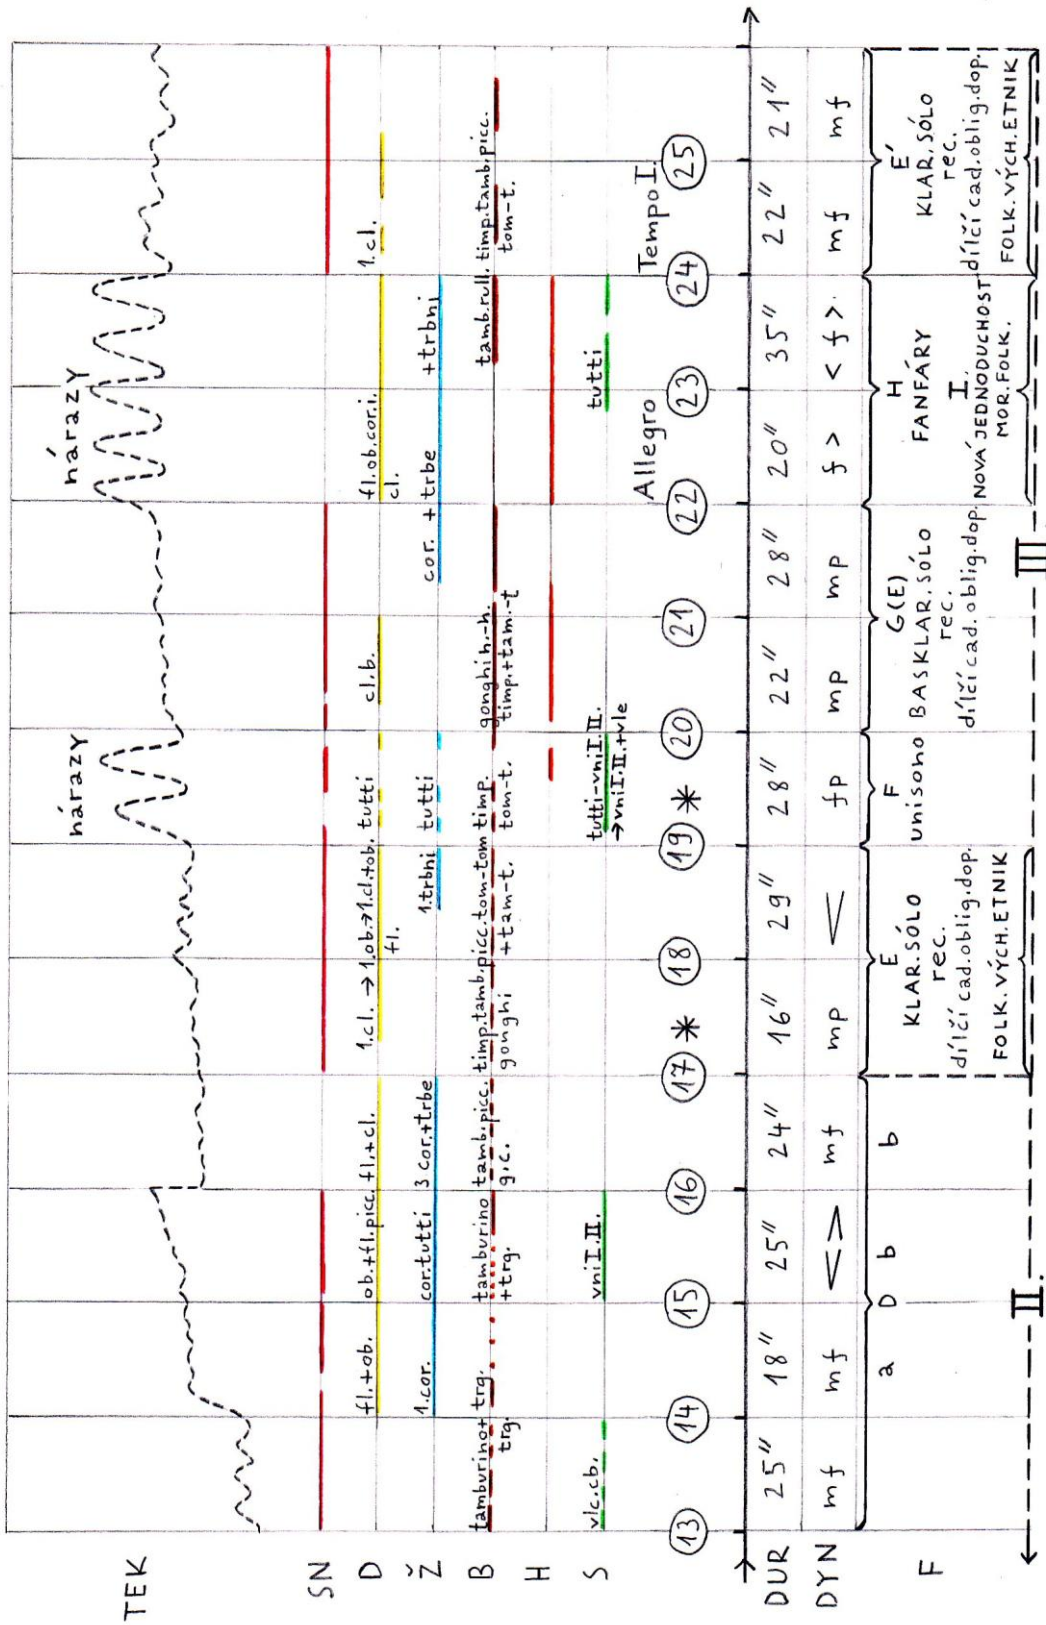 TEK
nárazy
nárazy
SN
D
fl.+ob.
ob.+fl.picc.
fl.+cl.
1.cl. → 1.ob.→1.cl.+ob.
fl.
tutti
cl.b.
fl.ob.cor.i.
cl.
1.cl.
Ž
1.cor.
cor.tutti
3 cor.+trbe
1.trbni
tutti
cor. + trbe
+trbni
B
tamburino+
trg.
trg.
tamburino
+trg.
tamb.picc.
g.c.
timp.tamb.picc.tom-tom
gonghi
+tam-t.
timp.
tom-t.
gonghi h.-h.
timp.+tam.-t
tamb.rull.
timp.tamb.picc.
tom-t.
H
S
vlc.cb.
vni I.II.
tutti-vni I.II.
→vni I.II.+vle
tutti
Allegro
Tempo I.
13 14 15 16 17 * 18 19 * 20 21 22 23 24 25
DUR 25" 18" 25" 24" 16" 29" 28" 22" 28" 20" 35" 22" 21"
DYN mf mf < > mf mp < fp mp mp f > < f > mf mf
F
a
D
b
b
E
KLAR.SÓLO
rec.
dílčí cad.oblig.dop.
FOLK.VÝCH.ETNIK
F
unisono
G(E)
BASKLAR.SÓLO
rec.
dílčí cad.oblig.dop.
H
FANFÁRY
I.
NOVÁ JEDNODUCHOST
MOR.FOLK.
E'
KLAR.SÓLO
rec.
dílčí cad.oblig.dop.
FOLK.VÝCH.ETNIK
II.
III.